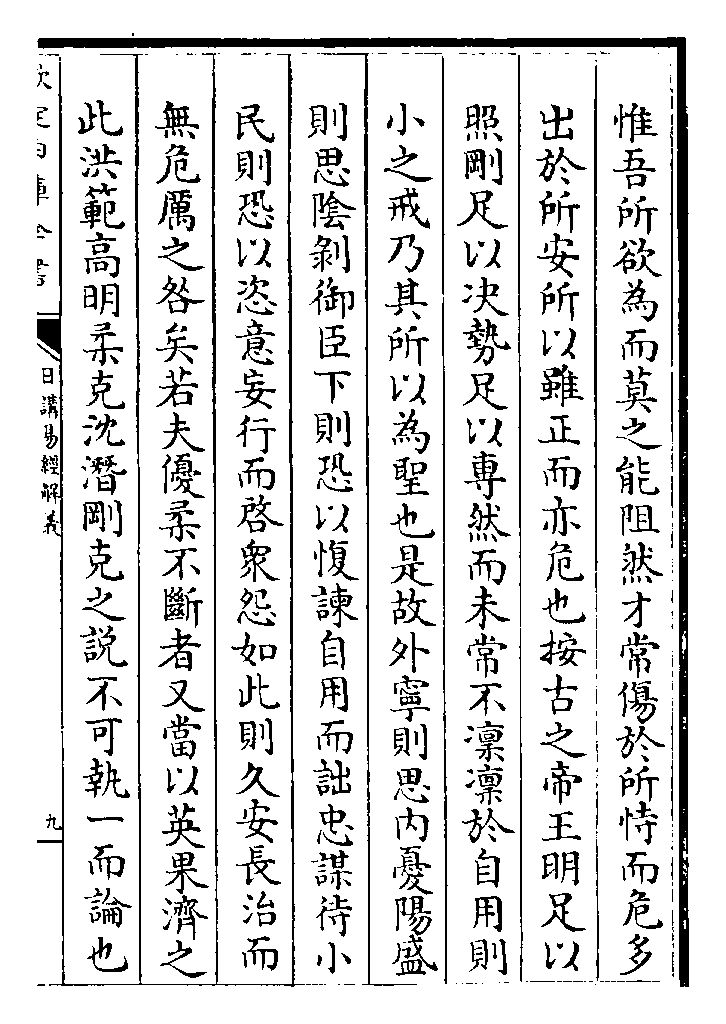 惟吾所欲為而莫之能阻然才常傷於所恃而危多
出於所安所以雖正而亦危也按古之帝王明足以
照剛足以决勢足以專然而未常不凜凜於自用則
小之戒乃其所以為聖也是故外寧則思内憂陽盛
則思陰剝御臣下則恐以愎諫自用而詘忠謀待小
民則恐以恣意妄行而啓衆怨如此則久安長治而
無危厲之咎矣若夫優柔不斷者又當以英果濟之
此洪範高明柔克沈潛剛克之説不可執一而論也
欽定四庫全書
日講易經解義
九